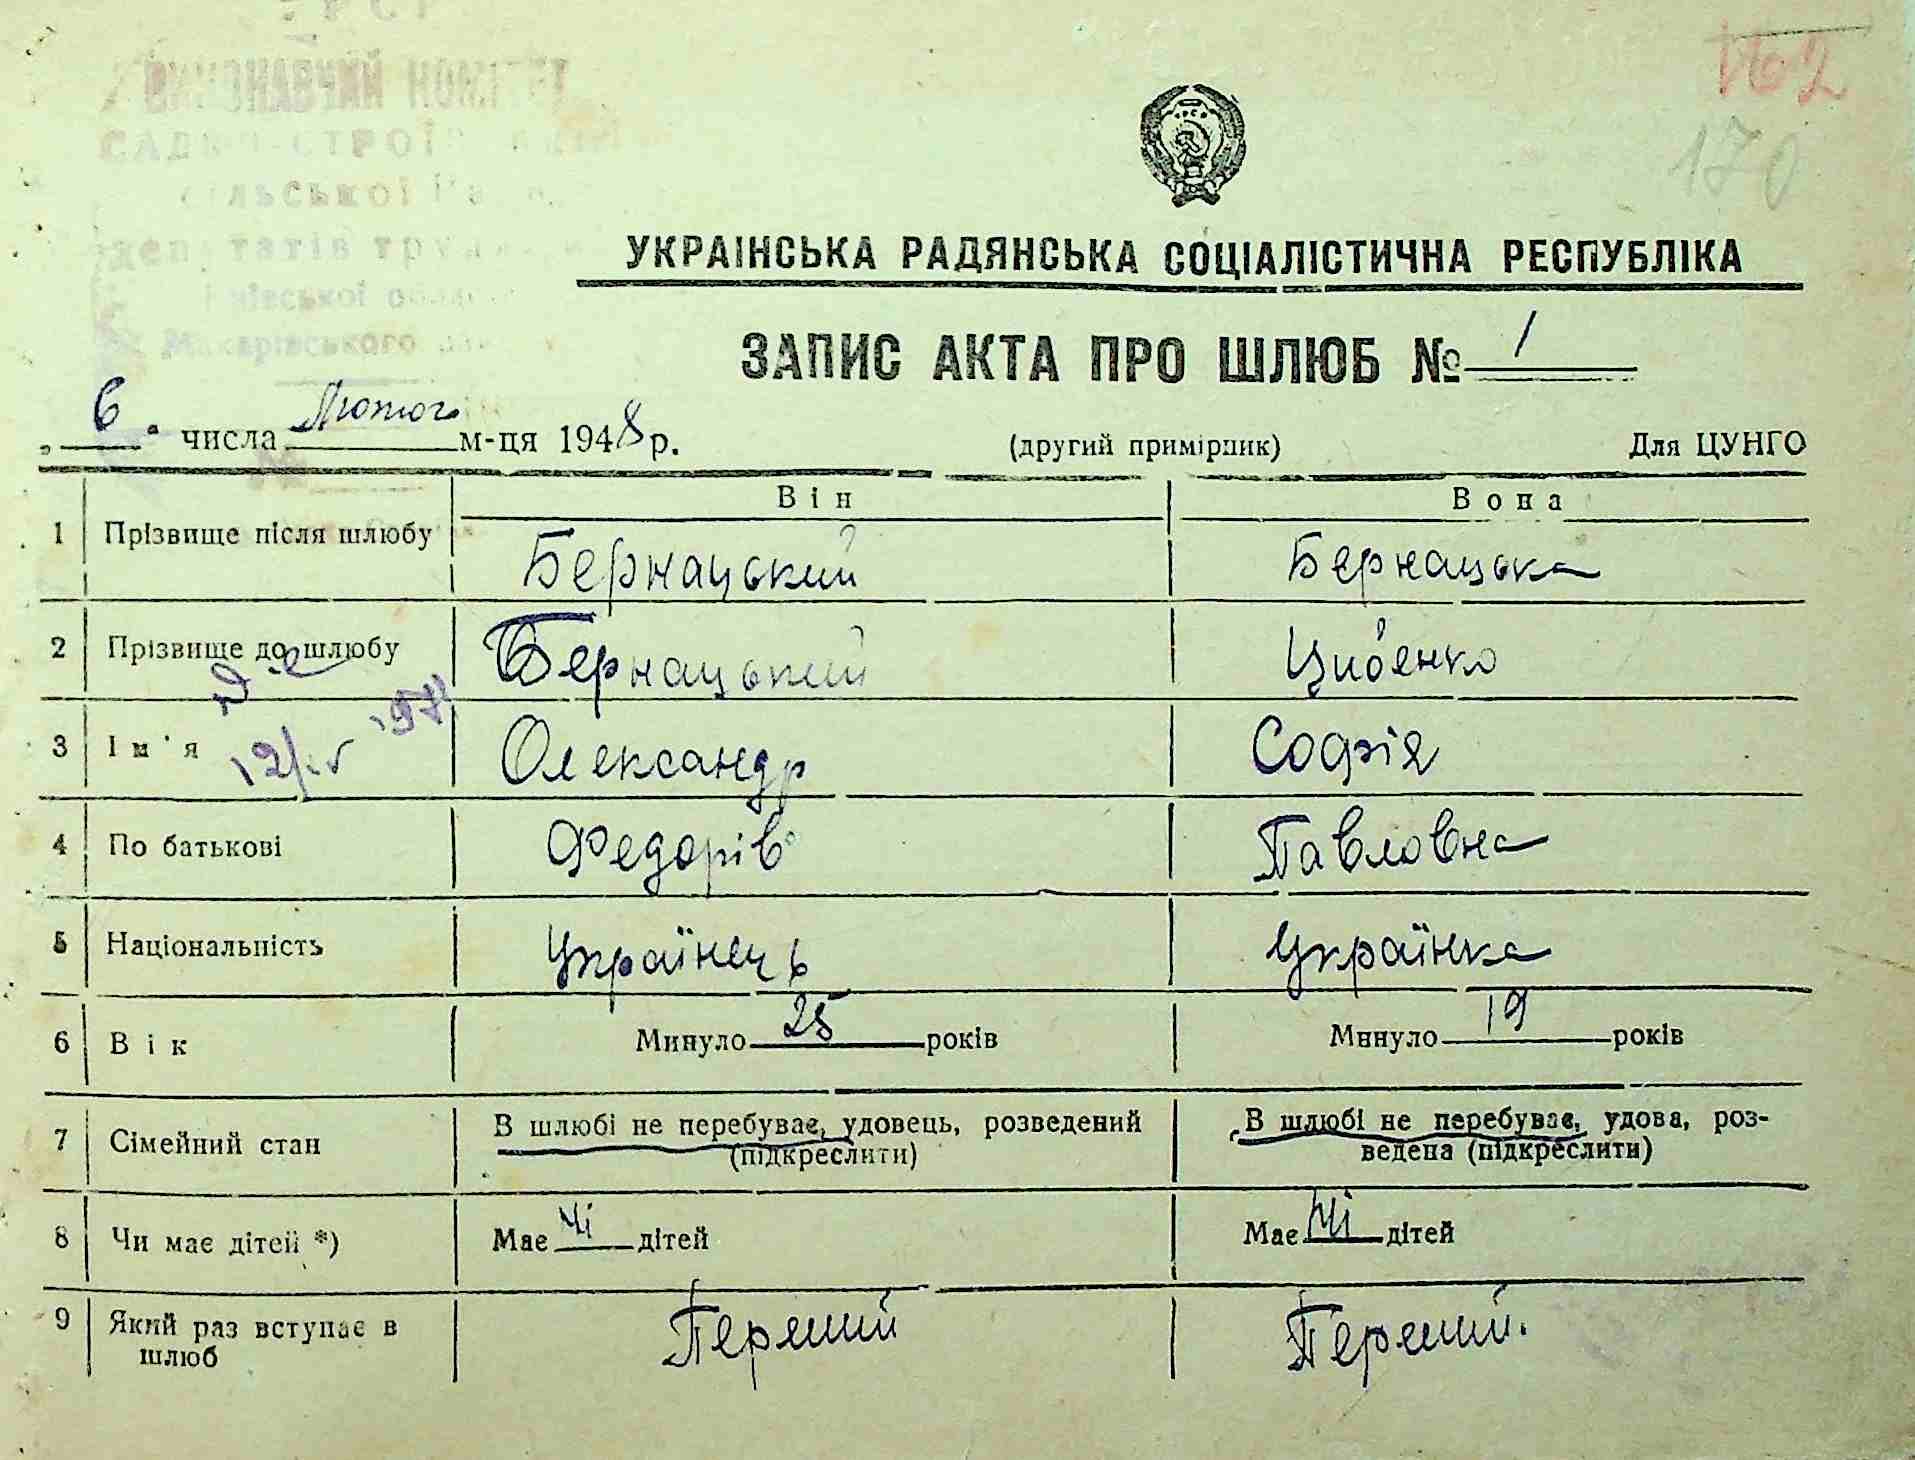 ВИКОНАВЧИЙ КОМІТЕТ
сільської
депутатів
Київської
Макарівського
162
170
УКРАЇНСЬКА РАДЯНСЬКА СОЦІАЛІСТИЧНА РЕСПУБЛІКА
ЗАПИС АКТА ПРО ШЛЮБ № 1
„ 6 “ числа Лютог м-ця 1948 р. (другий примірник) Для ЦУНГО
Він Вона
1 Прізвище після шлюбу Бернацький Бернацька
2 Прізвище до шлюбу Бернацький Циб'енко
3 Ім'я Олександр Софія
4 По батькові Федорів Павловна
5 Національність Українець Українка
6 Вік Минуло 25 років Минуло 19 років
7 Сімейний стан В шлюбі не перебуває, удовець, розведений (підкреслити) В шлюбі не перебуває, удова, роз-
ведена (підкреслити)
8 Чи має дітей *) Має ні дітей Має ні дітей
9 Який раз вступає в шлюб Перший Перший.